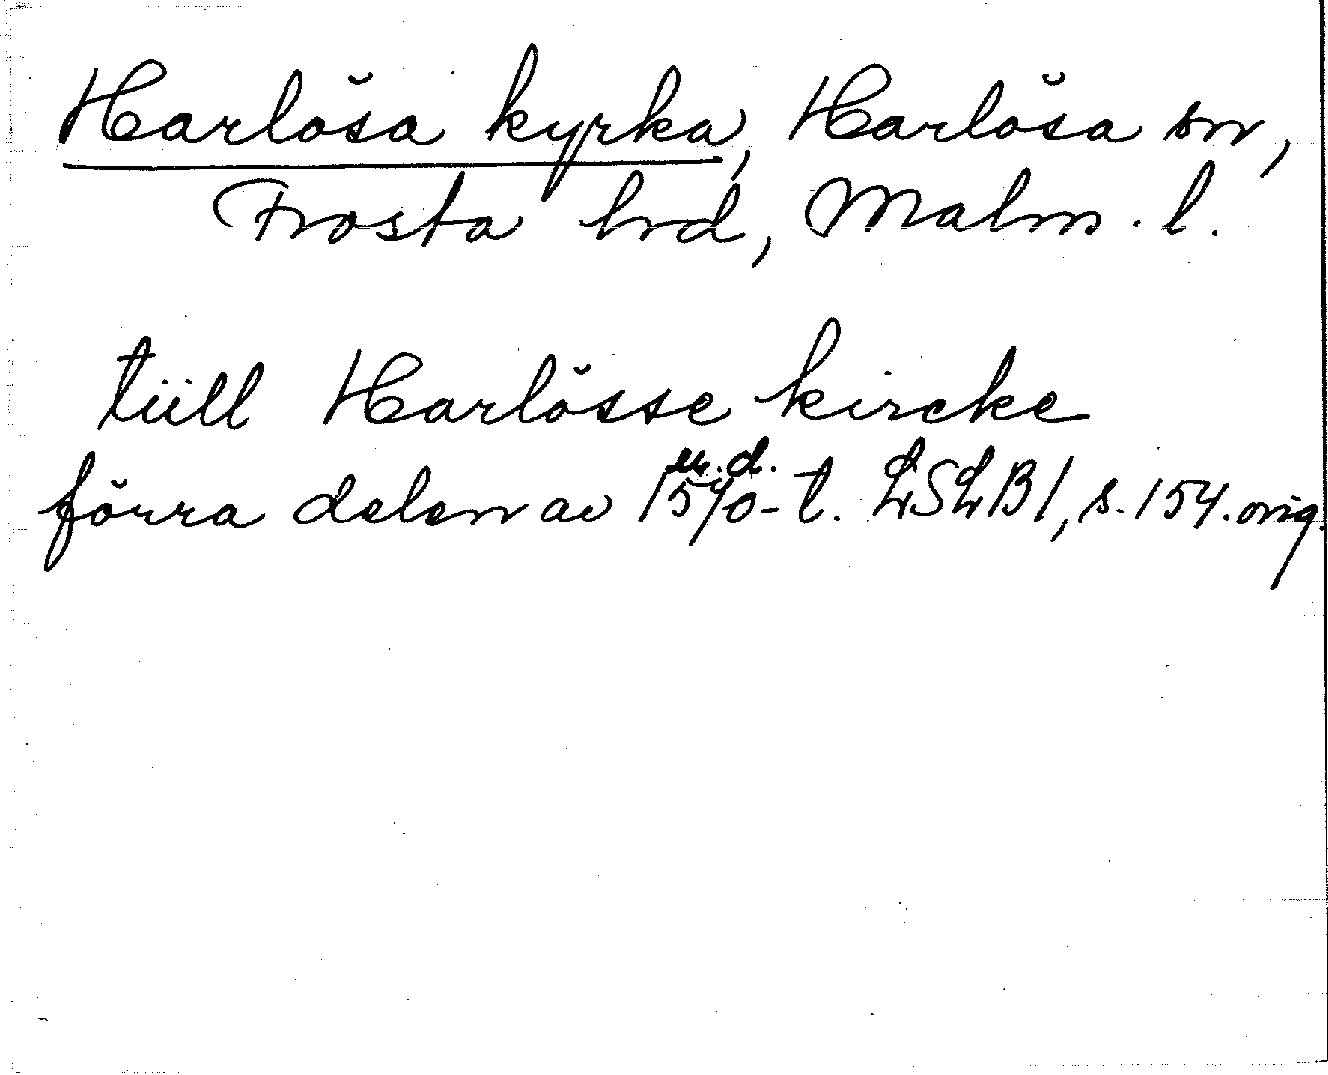 Harlösa kyrka, Harlösa sn,
Frosta hd, Malm. l.
tiill Harlösse kircke
u.d.
förra delen av 1540-t. LSLB 1, s. 154. orig.